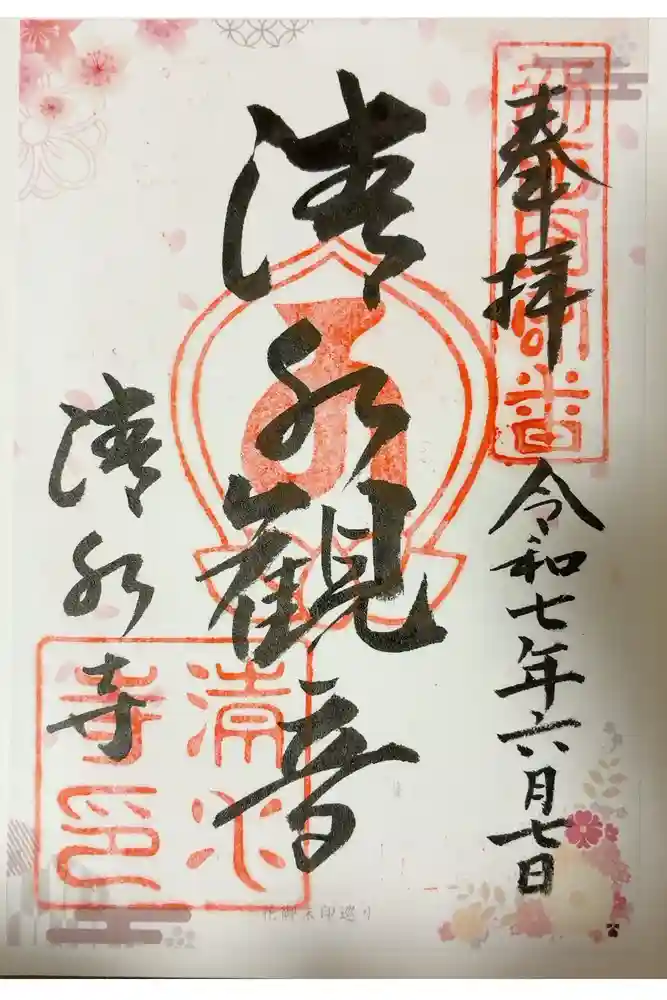 奉拝
令和七年六月七日
清水観音
清水寺
清水寺印
花御朱印巡り